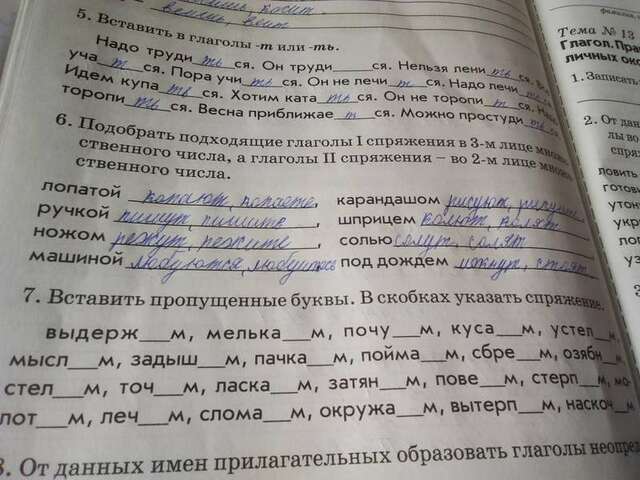 косит.
5. Вставить в глаголы -т или -ть.
Надо труди ть ся. Он труд___ся. Нельзя лени ть ся.
уча т ся. Пора учи ть ся. Он не лечи т ся. Надо лечи ть
Идем купа ть ся. Хотим ката ть ся. Он не торопи т ся.
торопи ть ся. Весна приближае т ся. Можно простуди ть
6. Подобрать подходящие глаголы I спряжения в 3-м лице множе-
ственного числа, а глаголы II спряжения – во 2-м лице множе-
ственного числа.
лопатой копают, копаете, карандашом рисуют,
ручкой пишут, пишите, шприцем колют, колят
ножом режут, режите, солью солут, солят
машиной любуются, под дождем мокнут, стоят
7. Вставить пропущенные буквы. В скобках указать спряжение.
выдерж___м, мелька___м, почу___м, куса___м, устел___м,
мысл___м, задыш___м, пачка___м, пойма___м, сбре___м, озябн___м,
стел___м, точ___м, ласка___м, затян___м, пове___м, стерп___м, мо-
лот___м, леч___м, слома___м, окружа___м, вытерп___м, наскоч___м
8. От данных имен прилагательных образовать глаголы неопре
Тема № 13
Глагол. Пра
личных око
1. Записать
2. От дан
лы во
спря
ловить
готови
утону
укр